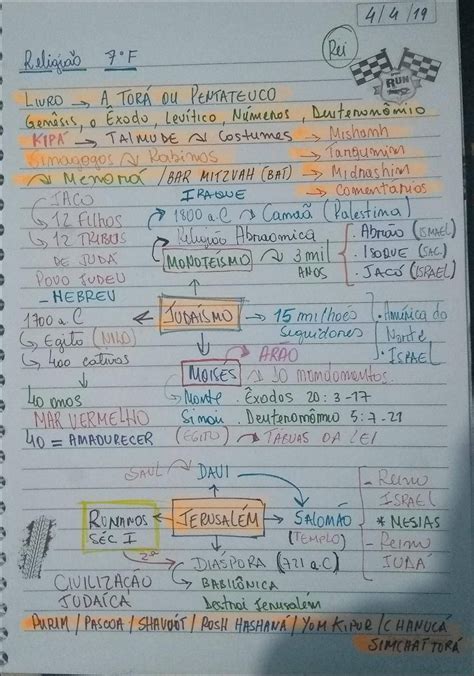 4/4/19
Religião 7º F
Rei
RUN
Livro → A Torá ou Pentateuco
Genâsis, o Êxodo, Levítico, Números, Deuteronômio
KIPÁ → TALMUDE ~ Costumes → Mishanh
Sinagogos ~ Rabinos → Targumim
~ Menorá / BAR MITZVAH (BAT) → Midrashim
→ Comentarios
JACÓ
IRAQUE
↳ 12 Filhos
→ 1800 a.C → Camaã (Palestina)
↳ 12 TRIBUS
→ Religião Abraomica
DE JUDÁ
MONOTEÍSMO ~ 3 mil
ANOS
. Abraão (ISMAEL)
. ISAQUE (JAC)
. JACÓ (ISRAEL)
POVO JUDEU
- HEBREU
1700 a.C ← JUDAÍSMO → 15 milhões
Seguidores
. América do
Norte
. ISRAEL
↳ Egito (NILO)
↳ 400 cativos
ARÃO
MOISÉS → 10 mandamentos.
40 anos
↳ Monte . Êxodos 20:3-17
MAR VERMELHO
Sinai . Deuteronômio 5:7-21
40 = AMADURECER
(EGITO) → TÁBUAS DA LEI
SAUL → DAVI
ROMANOS
SÉC I
← JERUSALÉM → SALOMÃO
(TEMPLO)
- Reino
ISRAEL
* MESIAS
- Reino
JUDÁ
2ª
DIÁSPORA (721 a.C)
CIVILIZAÇÃO
↳ BABILÔNICA
JUDAÍCA
Destroi Jerusalém
PURIM / PASCOA / SHAVUÓT / ROSH HASHANÁ / YOM KIPUR / CHANUCÁ
SIMCHAT TORÁ